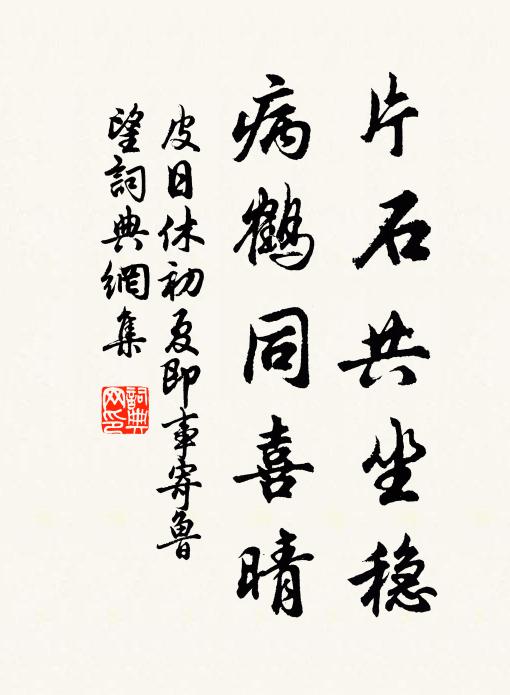 片石共坐稳
病鹤同喜晴
皮日休初夏即事寄鲁
望詞典網集
詞典
网印